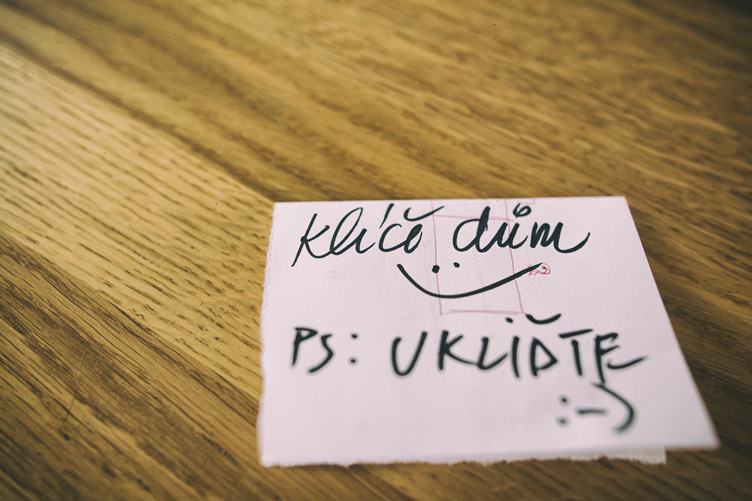 Klíče dům
PS: UKLIĎTE
:-)